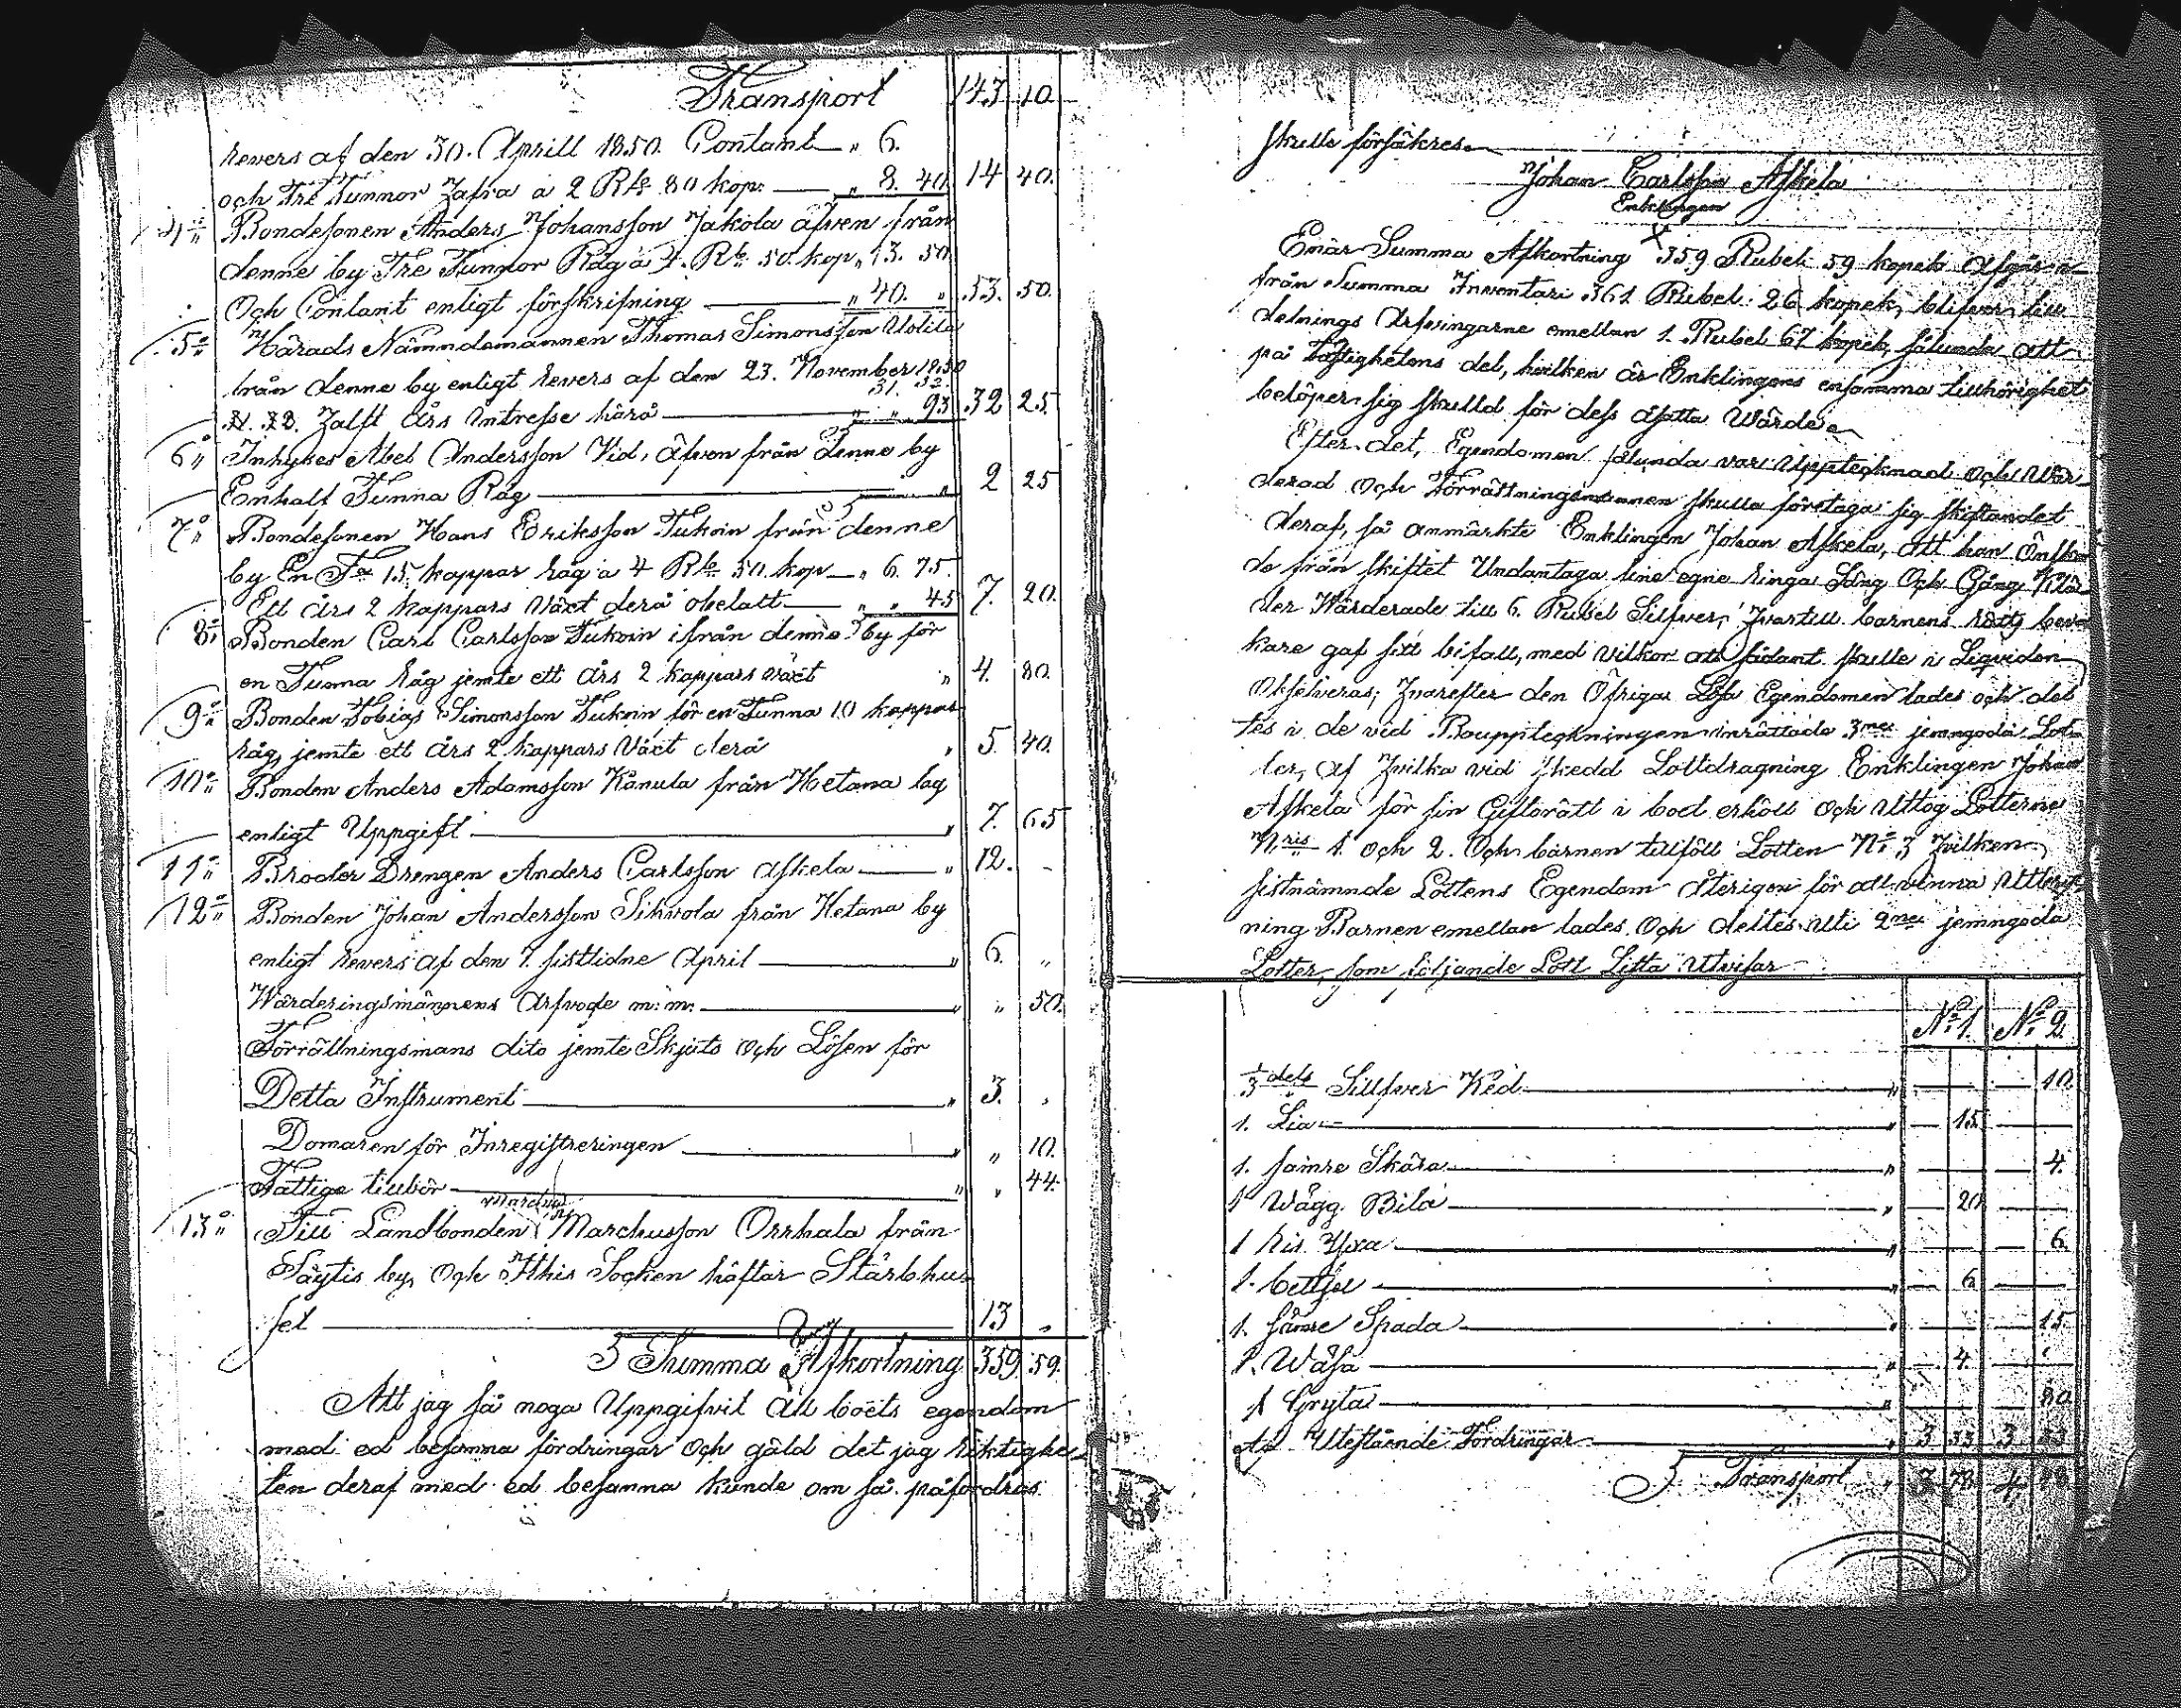 Transport 143 10.
revers af den 30. Aprill 1850. Contant „ 6.
och Tre Tunnor Hafra a 2 Rbl 80 kop: „ 8. 40 14 40.
4:o Bondesonen Anders Johansson Jakola äfven från
denne by Tre Tunnor Råg a 4. Rbl 50. kop „ 13. 50
Och Contant enligt förskrifning „ 40. „ 53. 50.
5:o Härads Nämndemannen Thomas Simonsson Uotila
från denne by enligt revers af den 23. November 1850
31. 32.
Halft års intresse härå „ „ 93 32 25.
6:o Inhyses Abel Andersson Vid, äfven från denne by
En half Tunna Råg „ 2 25
7:o Bondesonen Hans Eriksson Tukoin från denne
by En Ta 15. kappar råg a 4 Rbl 50. kop „ 6. 75.
Ett års 2 kappars växt derå obetalt „ „ 45 7. 20.
8:o Bonden Carl Carlsson Tukoin ifrån denne by för
en Tunna Råg jemte ett års 2 kappars växt „ 4. 80.
9:o Bonden Tobias Simonsson Tukoin för en Tunna 10 kappar
råg, jemte ett års 2 kappars växt derå „ 5. 40.
10:o Bonden Anders Adamsson Kanula från Hetana by
enligt Uppgift „ 7. 65
11:o Broder Drengen Anders Carlsson Askela „ 12. -
12:o Bonden Johan Andersson Sikvola från Hetana by
enligt revers af den 1. sistlidne April „ 6. „
Wärderingsmännens Arfvode m: m: „ „ 50.
Förrättningsmans dito jemte Skjuts och Lösen för
Detta Instrument „ 3. „
Domaren för Inregistreringen „ „ 10.
Fattige tillbör „ „ 44.
13:o Till Landbonden Marchusson Orrhala från
Säytis by, Och Ithis Socken häftar Stärbhu-
set 13 „
Summa Afkortning 359. 59.
Att jag så noga Uppgifvit all boets egendom
med ed besanna fördringar och gäld det jag riktighe-
ten deraf med ed besanna kunde om så påfordras
skulle försäkres
Johan Carlsson Askela
Enklingen
Enär Summa Afkortning 359 Rubel 59 kopek afgår
från Summa Inventari 361 Rubel 26 kopek, blifver till
delnings Arfvingarne emellan 1. Rubel 67 kopek, sålunda att
på Fastighetens del, hvilken är Enklingens ensamma tillhörighet
belöper sig skulld för dess åsatta Wärde
Efter det, Egendomen sålunda var Uppteknad Och Wär-
derad Och Förrättningsmannen skulle företaga sig skiftandet
deraf, så anmärkte Enklingen Johan Askela, att han Önska-
de från skiftet Undantaga sine egne ringa Säng Och Gång Klä-
der Wärderade till 6. Rubel Silfver, Hvartill barnens rätts beva-
kare gaf sitt bifall, med vilkor att sådant skulle i Liqviden
Hvarefter den Öfriga Lösa Egendomen lades och del-
tes i de vid Bouppteckningen inrättade 3ne jemngoda Lot-
ter, Af Hvilka vid skedd Lottdragning Enklingen Johan
Askela för sin Giftorätt i bod erhöll och Uttog Lotterne
N:ris 1. och 2. Och barnen tillföll Lotten N:o 3 Hvilken
sistnämnde Lottens Egendom Återigen för att vinna
ning Barnen emellan lades Och deltes Uti 2ne jemngoda
Lotter, som följande Lott Lista Utvisar
N:o 1. N:o 2
1/3 dels Sillfver Ked „ 10.
1. Lia „ 15
1. sämre Skära „ 4.
1 Vägg Bila „ 20
1 ris Yxa „ 6.
1. bettsel „ 6.
1. sämre Spada „ 15.
1. Wåsa „ 4.
1 Gryta „ 80
Af Utestående Fordringar „ 3 33 3 33
Transport „ 3 78 4 48